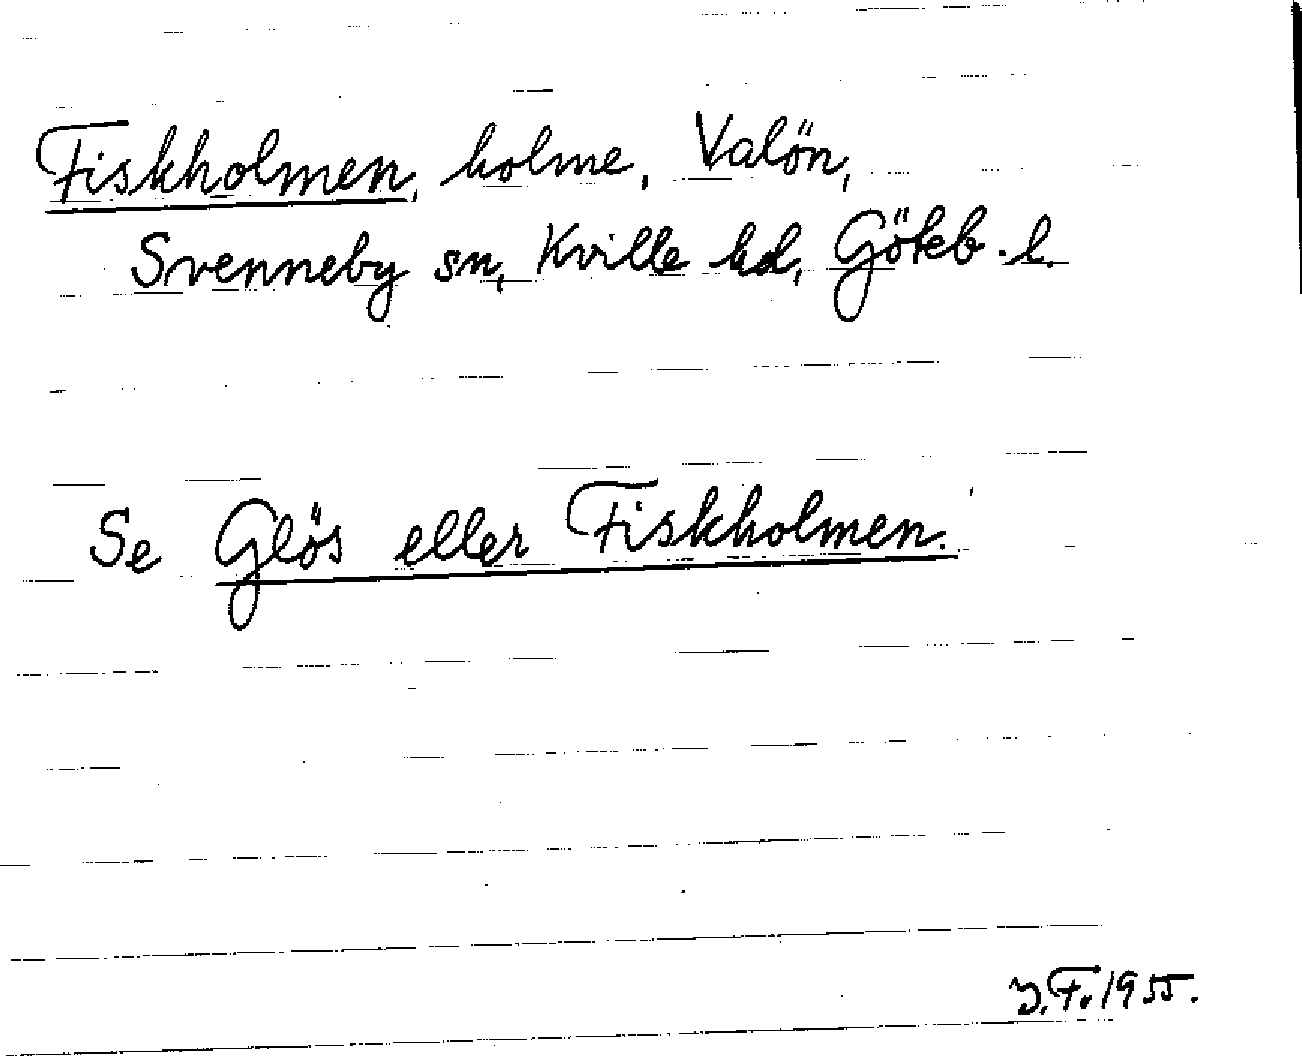 Fiskholmen, holme, Valön,
Svenneby sn, Kville hd, Göteb. l.
Se Glös eller Fiskholmen.
J.F. 1955.